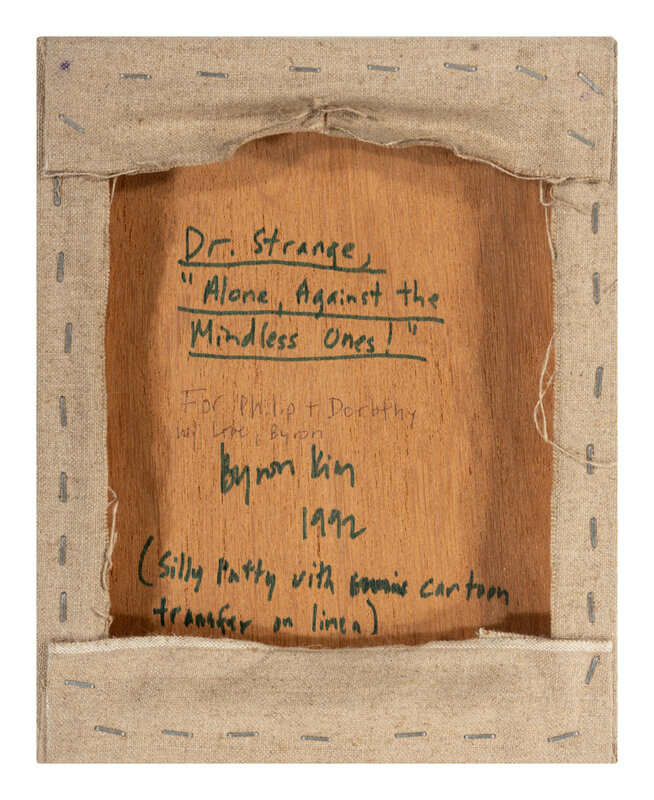 Dr. Strange,
"Alone, Against the
Mindless Ones!"
For Philip + Dorothy
w/ Love, Byron
Byron Kim
1992
(Silly Putty with cartoon
transfer on linen)